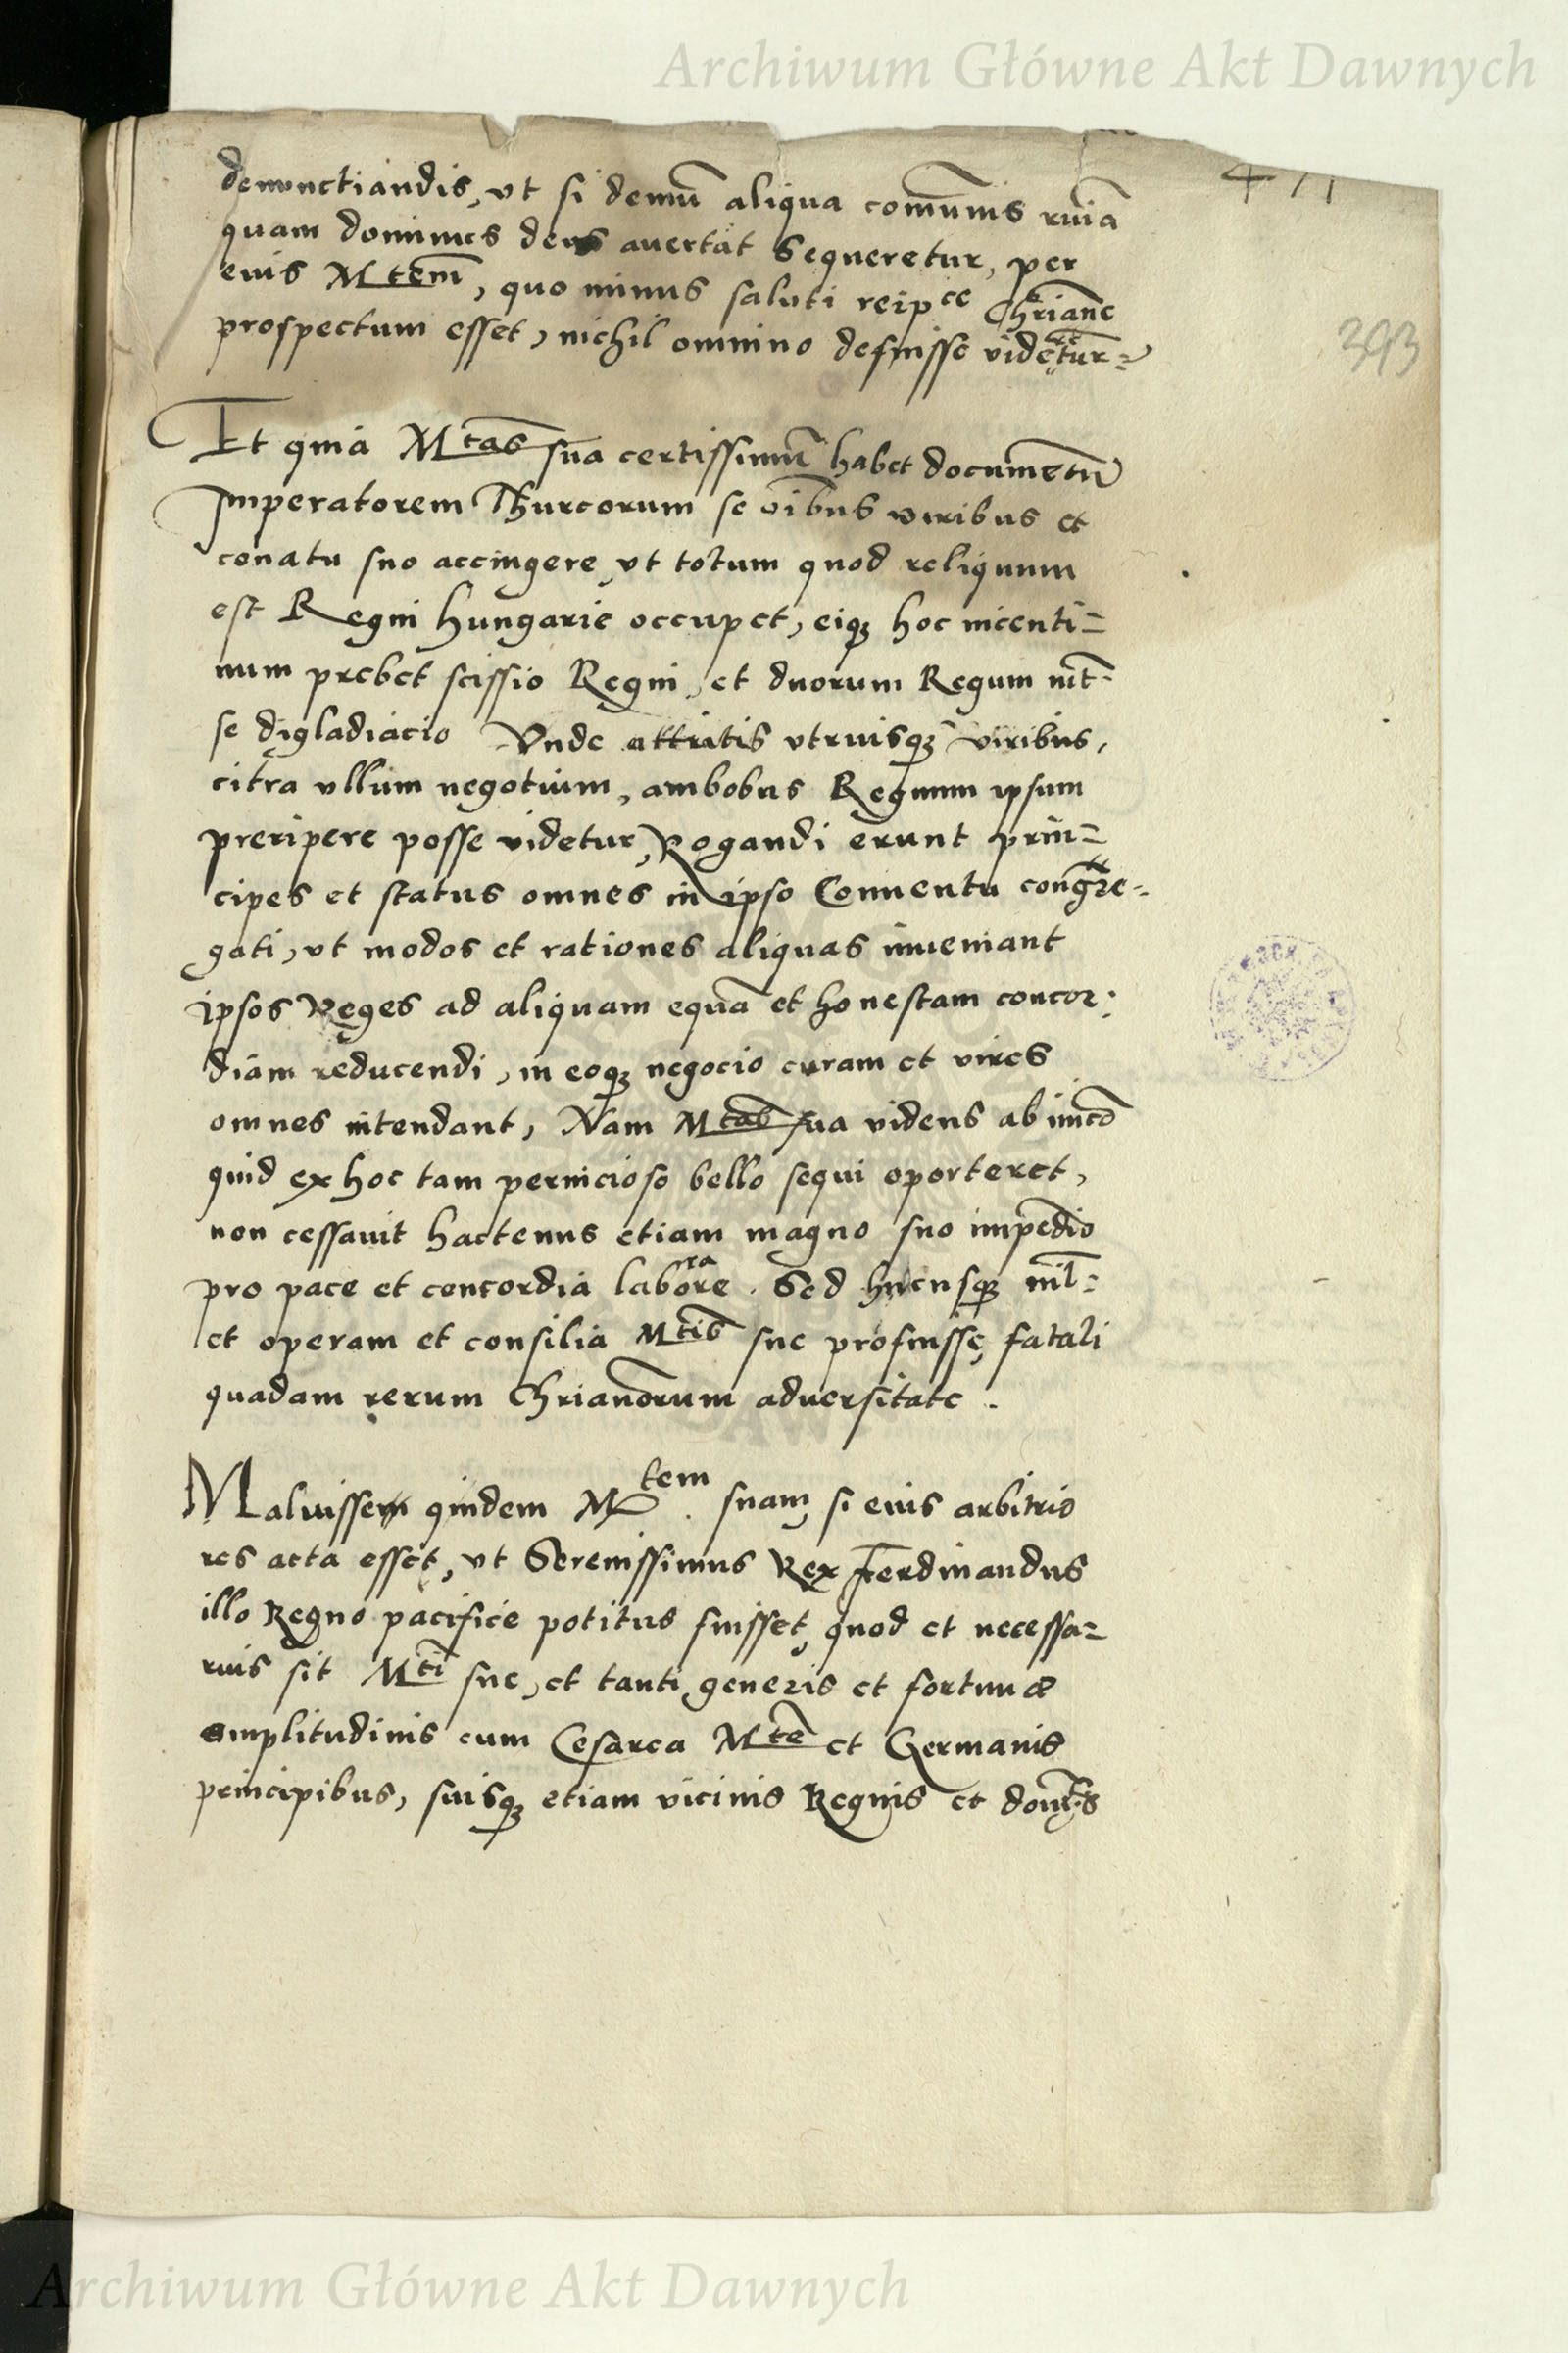 Archiwum Główne Akt Dawnych
471
denunctiandis, vt si demū aliqua com̄unis ruīa
quam dominus deus auertat sequeretur, per
eius Mtem̄, quo minus saluti reipce Chrīane
393
prospectum esset, nichil omnino defuisse videretur
Et quia Mtas̄ sua certissimū habet documētū
Imperatorem Thurcorum se oībus viribus et
conatu suo accingere vt totum quod reliquum
est Regni Hungarie occupet, eiqꝫ hoc incenti=
uum prebet scissio Regni, et duorum Regum int̄
se digladiacio Vnde attritis vtriusqꝫ viribus,
citra vllum negotium, ambobus Regnum ipsum
preripere posse videtur, Rogandi erunt prin=
cipes et status omnes in ipso Conuentu congre-
gati, vt modos et rationes aliquas inueniant
ipsos Reges ad aliquam equā et honestam concor:
diam reducendi, in eoqꝫ negocio curam et vires
omnes intendant, Nam Mtas̄ sua videns ab inicō
quid ex hoc tam pernicioso bello sequi oporteret,
non cessauit hactenus etiam magno suo impēdio
pro pace et concordia laborare. Sed hucusqꝫ nil̄:
et operam et consilia Mtis̄ sue profuisse, fatali
quadam rerum Chrianōrum aduersitate .
Maluissem quidem Mtem. suam, si eius arbitrio
res acta esset, vt Serenissimus Rex Ferdinandus
illo Regno pacifice potitus fuisset, quod et necessa=
rius sit Mti̅ sue, et tanti generis et fortunæ
amplitudinis cum Cesarea Mtē et Germanis
principibus, suisqꝫ etiam vicinis Regnis et
Archiwum Główne Akt Dawnych